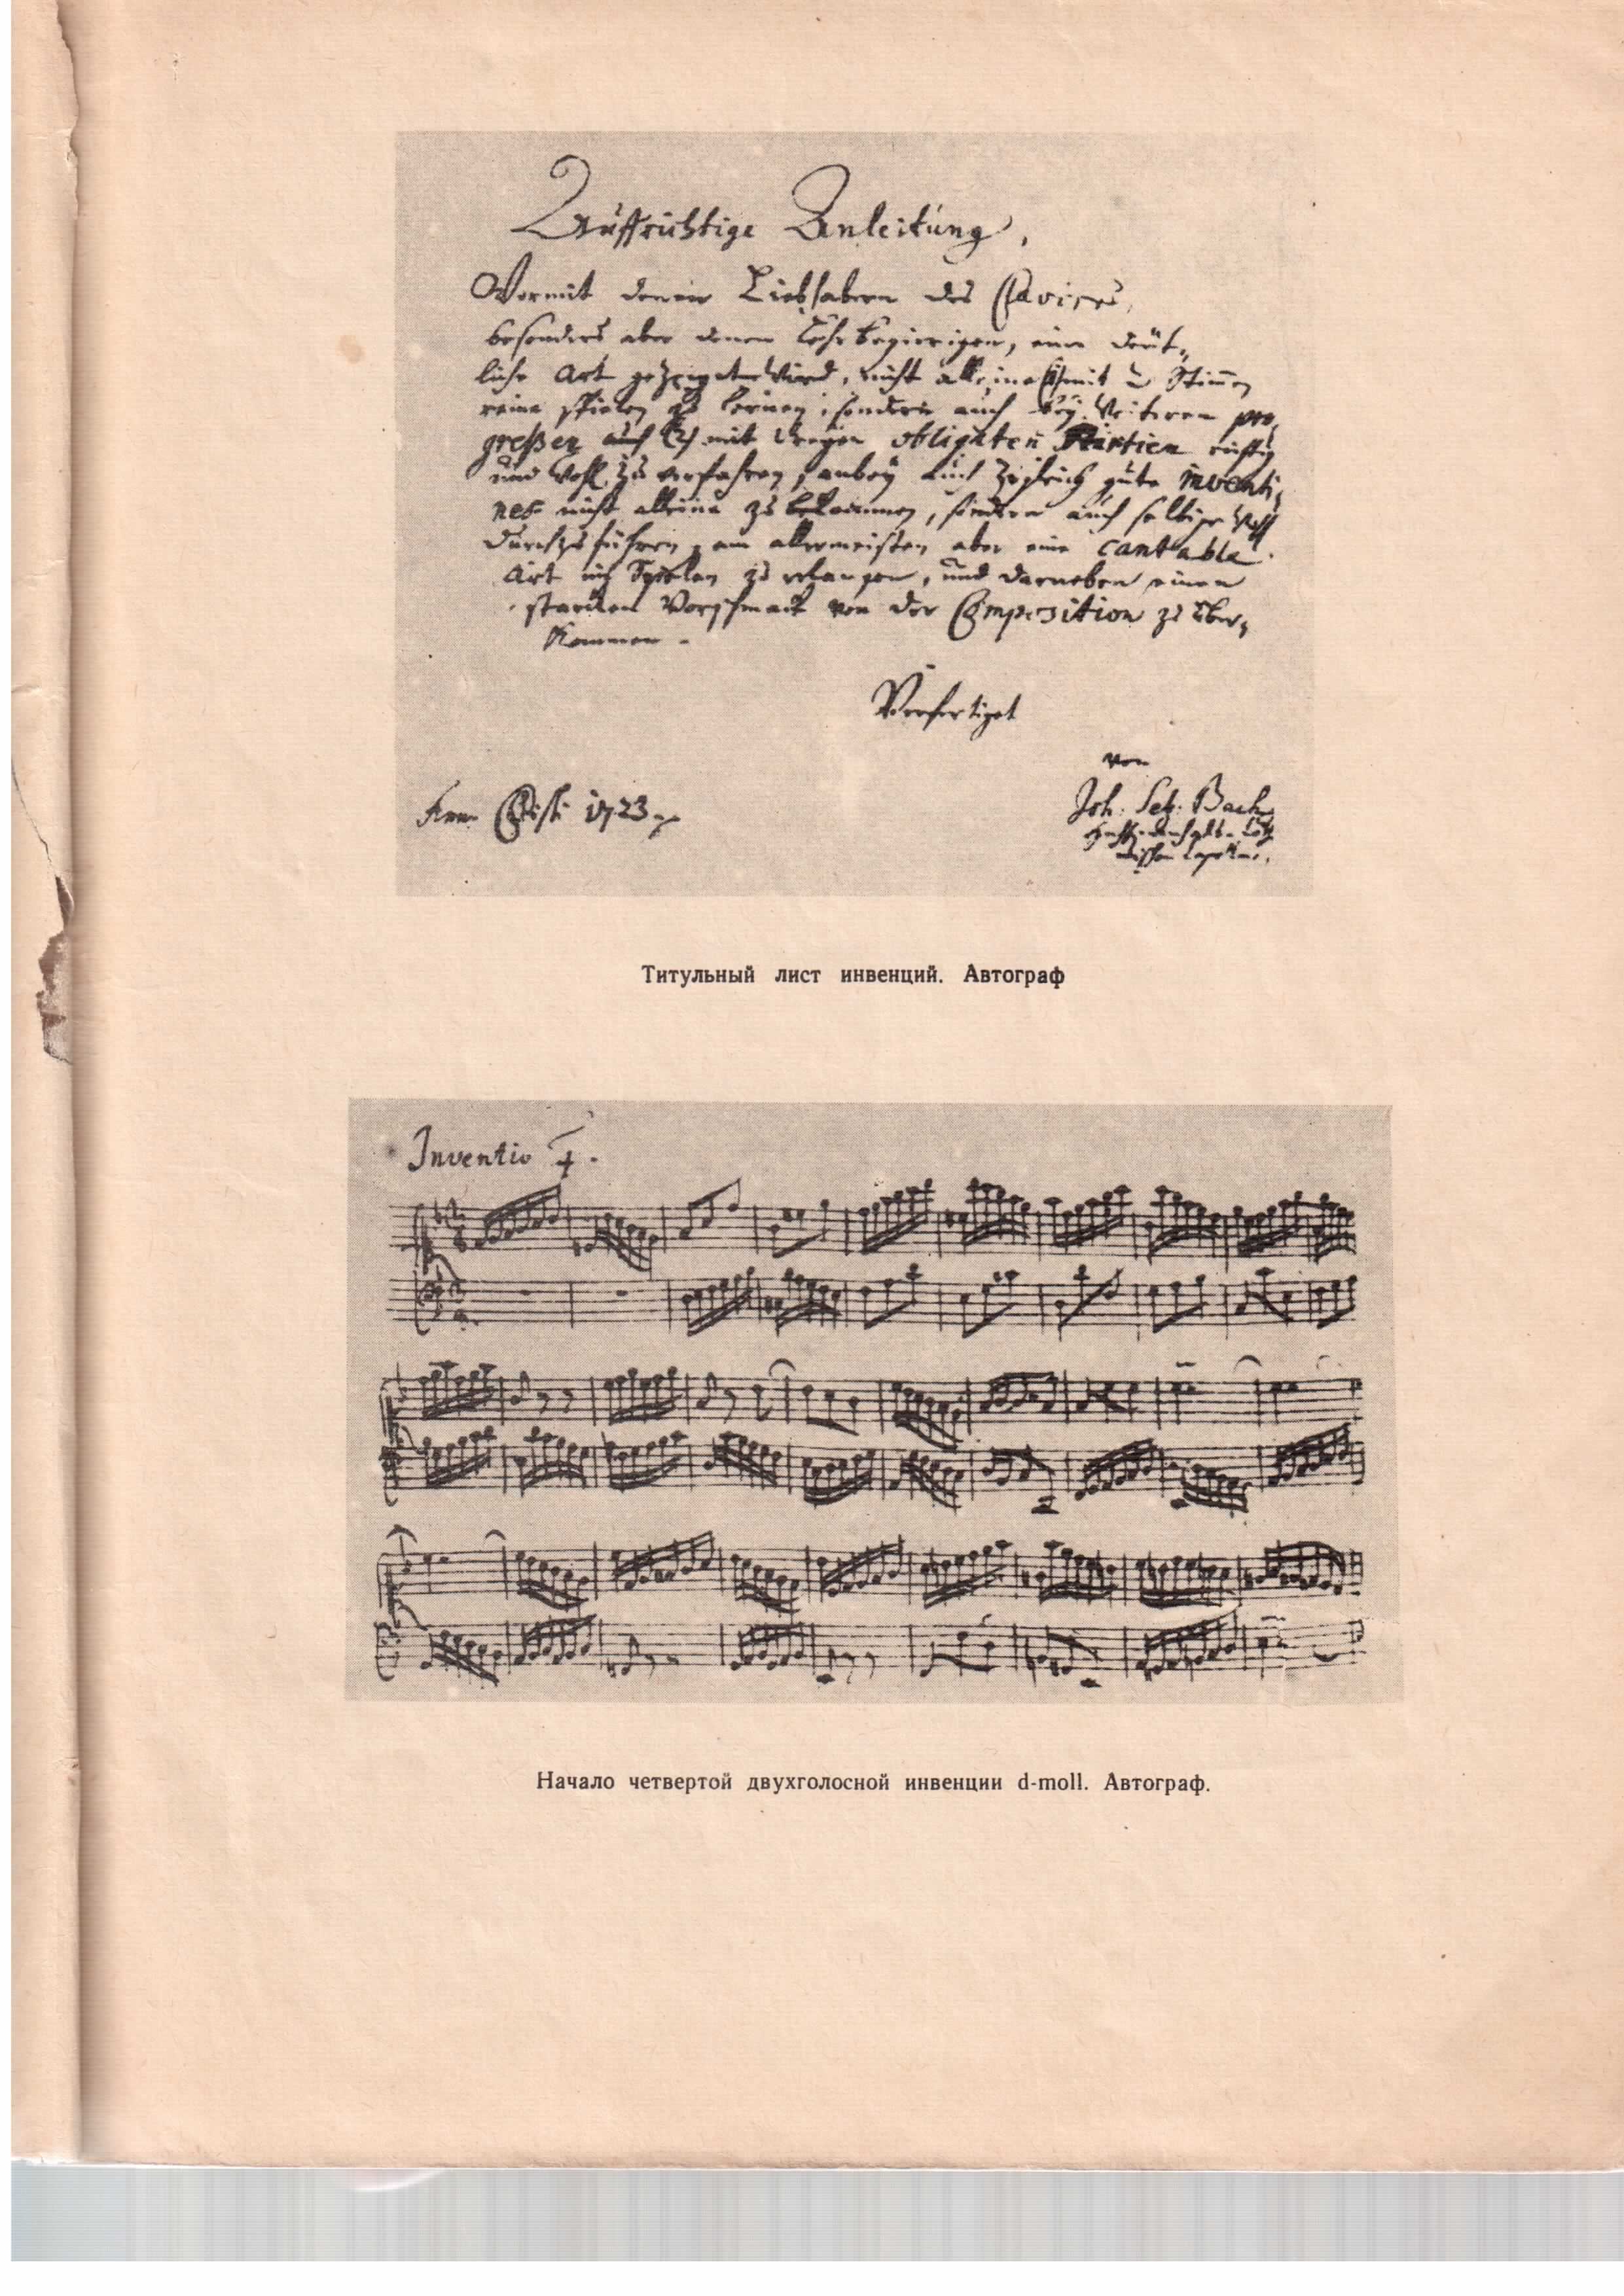 Auffrichtige Anleitung,
Wormit denen Liebhabern des Clavires,
besonders aber denen Lehrbegierigen, eine deüt-
liche Art gezeiget wird, nicht alleine (1) mit 2 Stimen
reine spielen zu lernen, sondern auch bey weiteren pro-
greßen auch (2) mit dreyen obligaten Partien richtig
und wohl zu verfahren, anbey auch zugleich gute inventi-
nes nicht alleine zu bekommen, sondern auch selbige wohl
durchzuführen, am allermeisten aber eine cantable
Art im Spielen zu erlangen, und darneben einen
starcken Vorschmack von der Composition zu über-
kommen.
Verfertiget
von
Anno Christi 1723.
Joh. Seb. Bach
Титульный лист инвенций. Автограф
Inventio 4.
Начало четвертой двухголосной инвенции d-moll. Автограф.